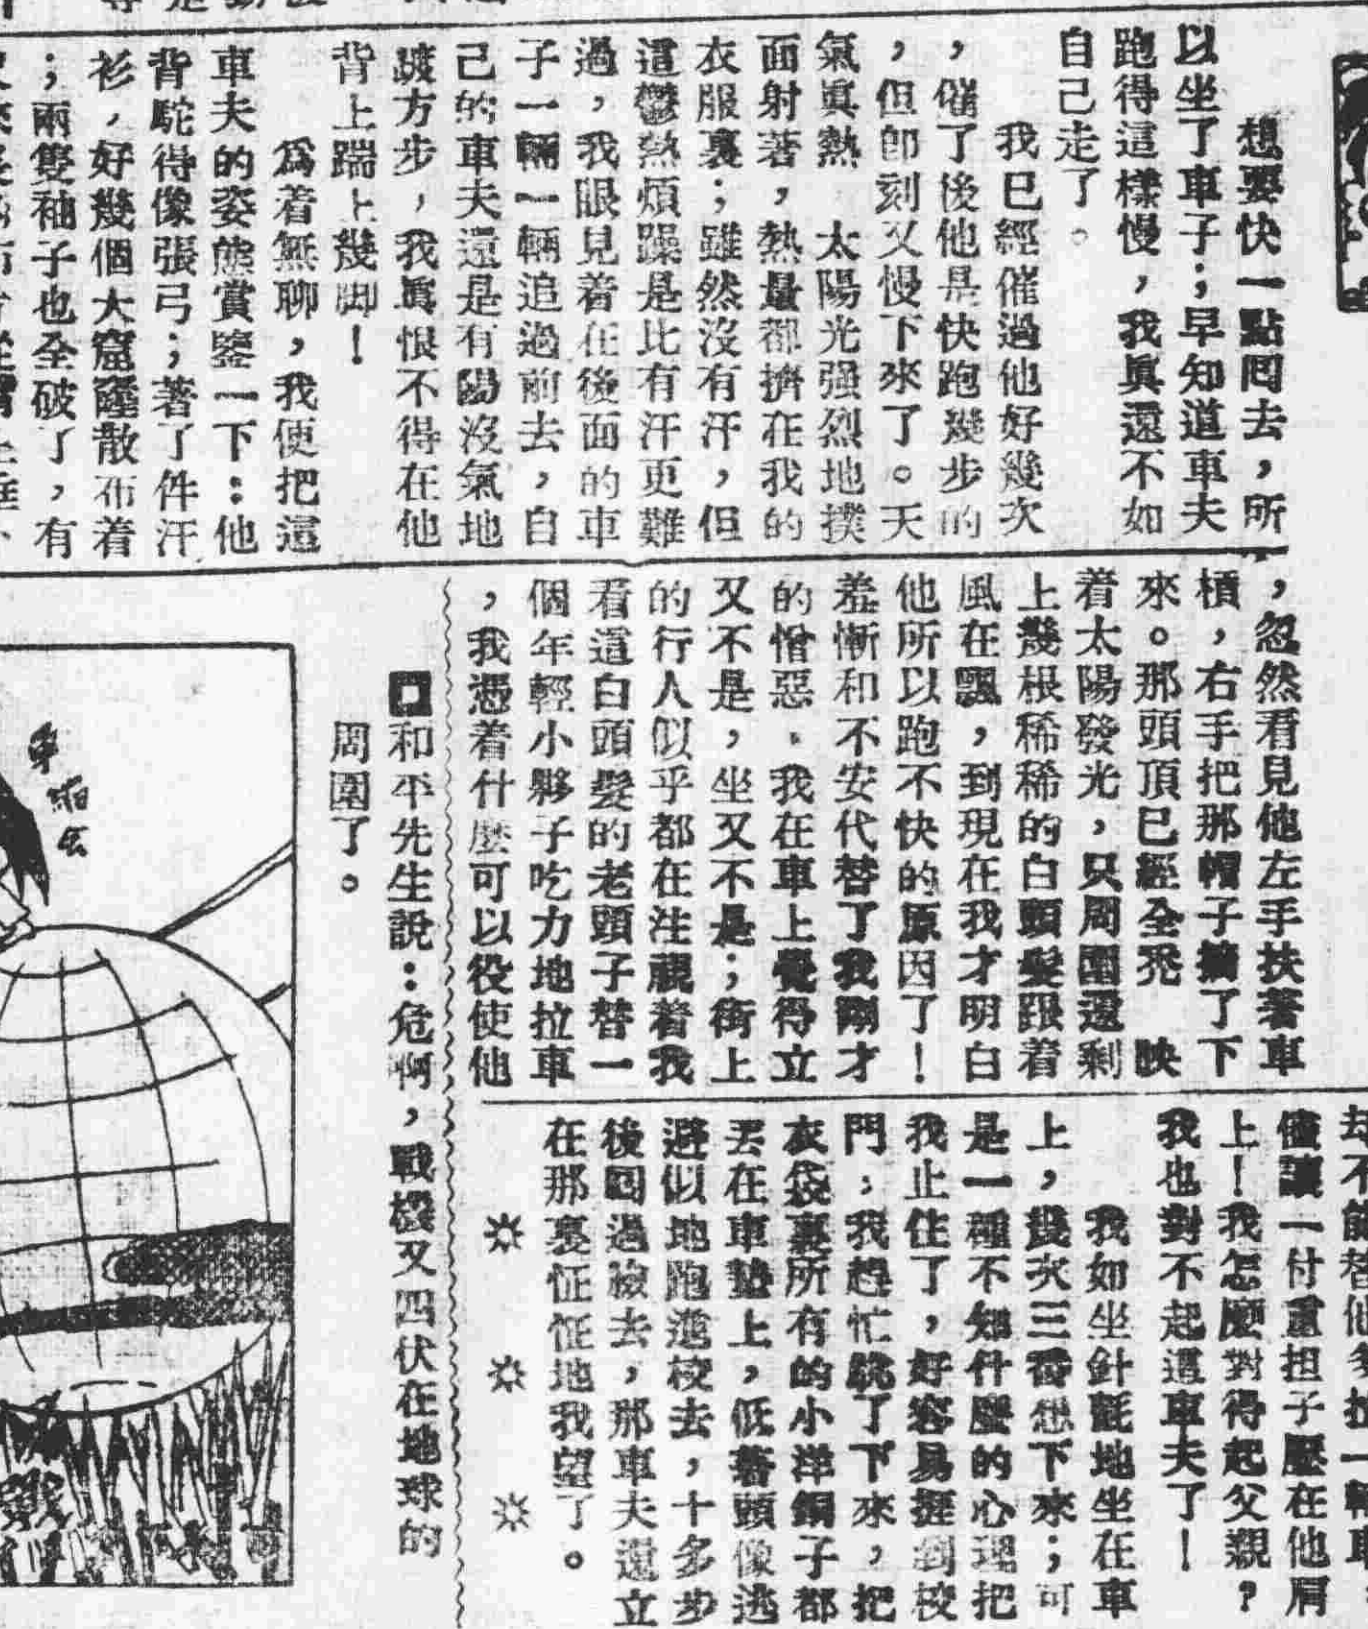 想要快一點囘去，所
以坐了車子；早知道車夫
跑得這樣慢，我眞還不如
自己走了。
我已經催過他好幾次
，催了後他是快跑幾步的
，但卽刻又慢下來了。天
氣眞熱　太陽光强烈地撲
面射著，熱量都擠在我的
衣服裏；雖然沒有汗，但
這鬱熱煩躁是比有汗更難
過，我眼見着在後面的車
子一輛一輛追過前去，自
己的車夫還是有陽沒氣地
踱方步，我眞恨不得在他
背上踹上幾脚！
爲着無聊，我便把這
車夫的姿態賞鑒一下：他
背駝得像張弓；著了件汗
衫，好幾個大窟窿散布着
；兩隻袖子也全破了，有
，忽然看見他左手扶著車
槓，右手把那帽子摘了下
來。那頭頂已經全禿　映
着太陽發光，只周圍還剩
上幾根稀稀的白頭髮跟着
風在飄，到現在我才明白
他所以跑不快的原因了！
羞慚和不安代替了我剛才
的憎惡．我在車上覺得立
又不是，坐又不是；街上
的行人似乎都在注視着我
看這白頭髮的老頭子替一
個年輕小夥子吃力地拉車
，我憑着什麽可以役使他
却不能替他多拉一輛車
儘讓一付重担子壓在他肩
上！我怎麽對得起父親？
我也對不起這車夫了！
我如坐針氈地坐在車
上，幾次三番想下來；可
是一種不知什麽的心理把
我止住了，好容易捱到校
門，我趕忙跳了下來，把
衣袋裏所有的小洋銅子都
丟在車墊上，低著頭像逃
避似地跑進校去，十多步
後囘過臉去，那車夫還立
在那裏怔怔地我望了。
和平先生說：危啊，戰機又四伏在地球的
周圍了。